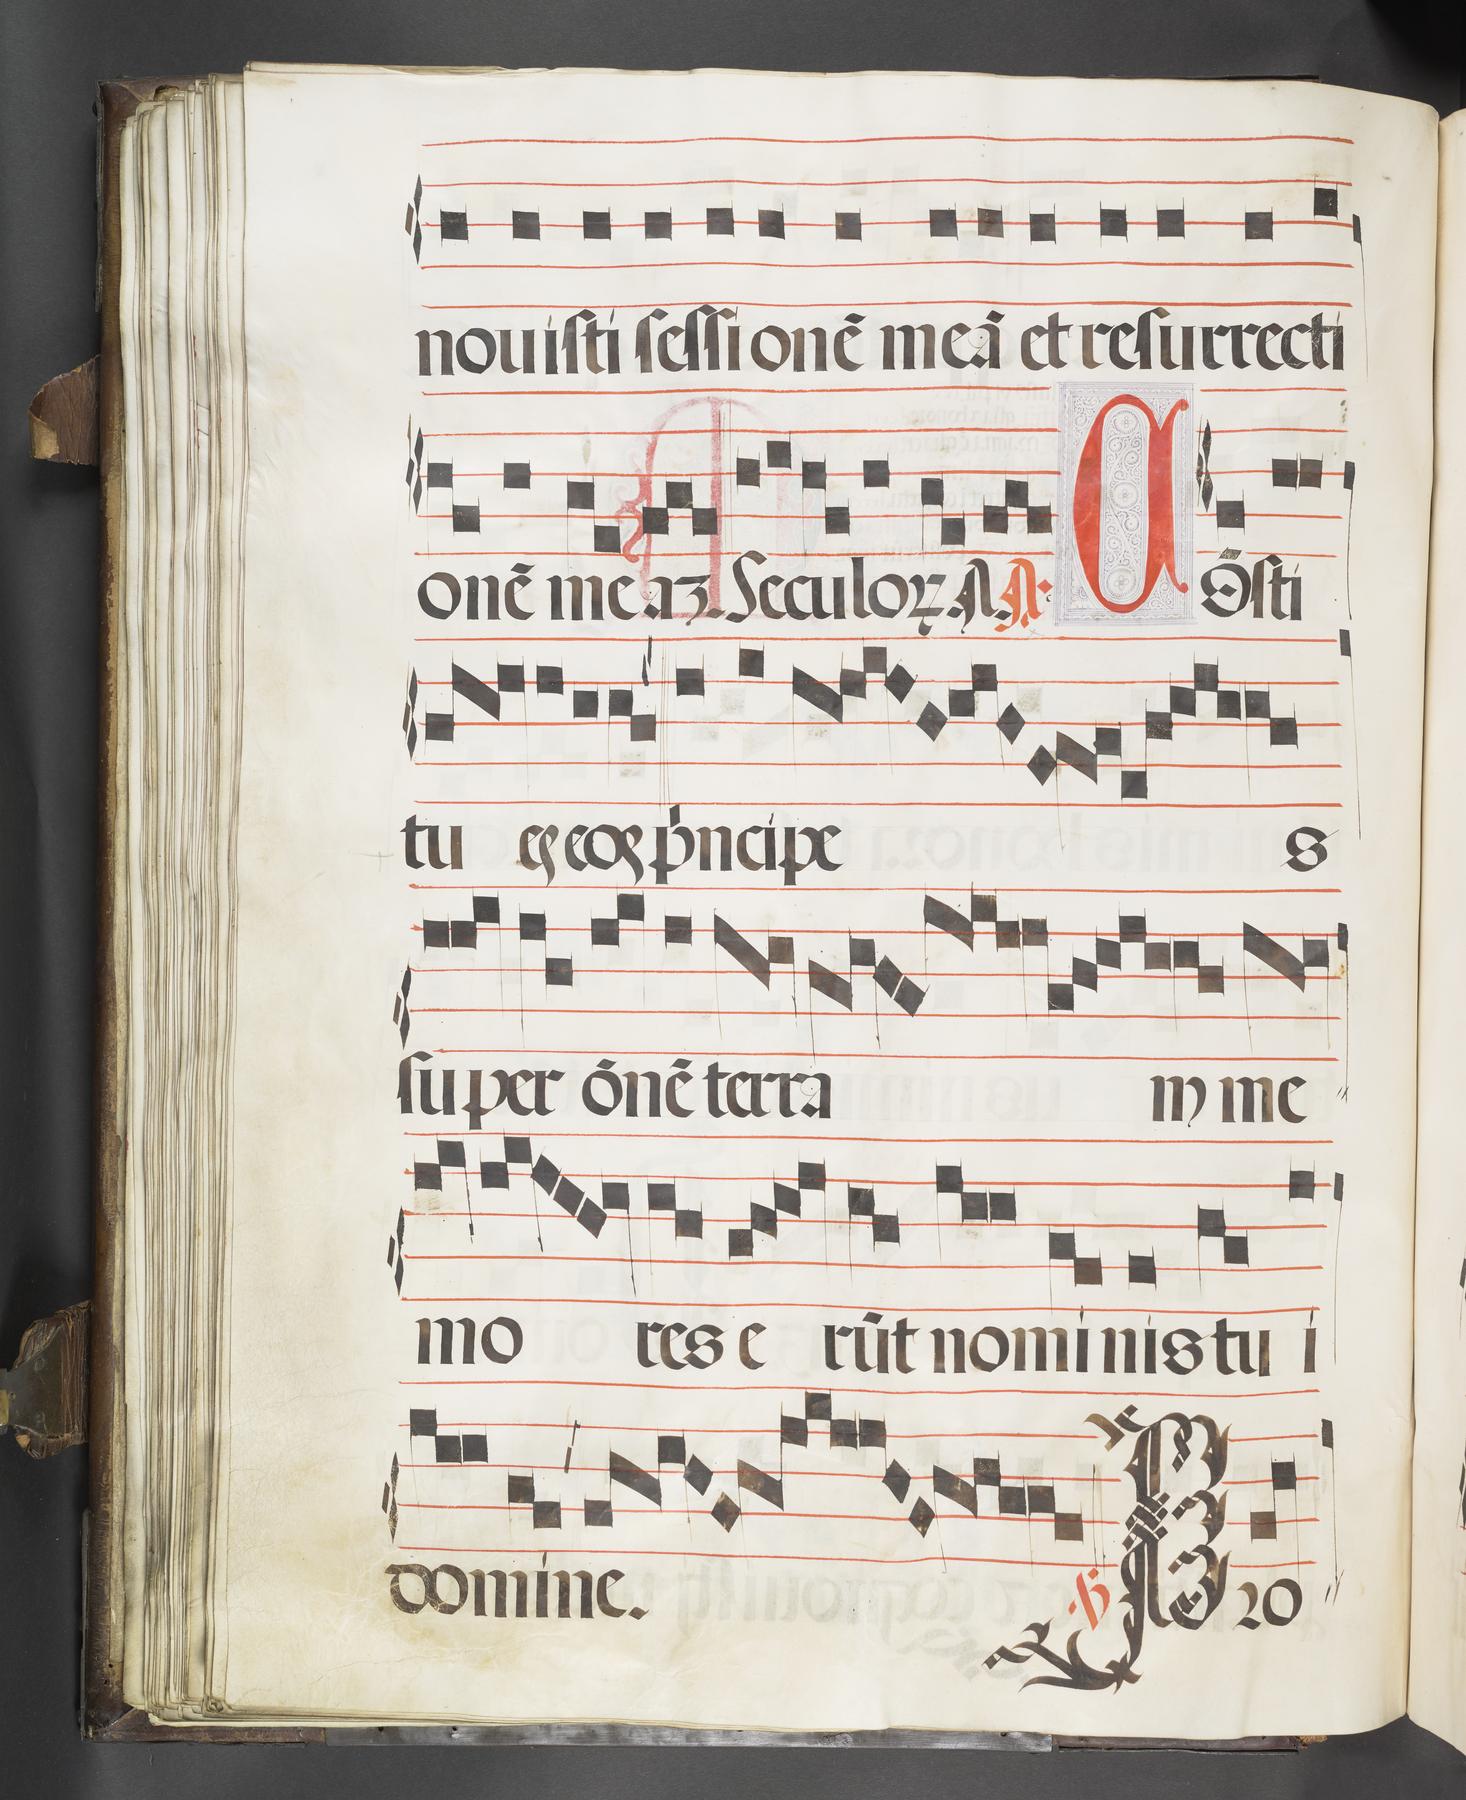 nouisti sessionē meā et resurrecti
onē meaʒ. Seculoꝝ A A. C Ōsti
tu es eos pͥncipe s
super ōnē terra m me
mo res e rūt nominis tu i
domine. ℟ P ro